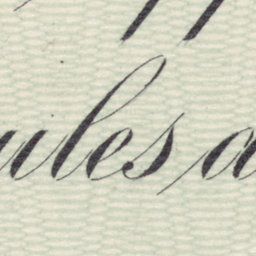 ules a